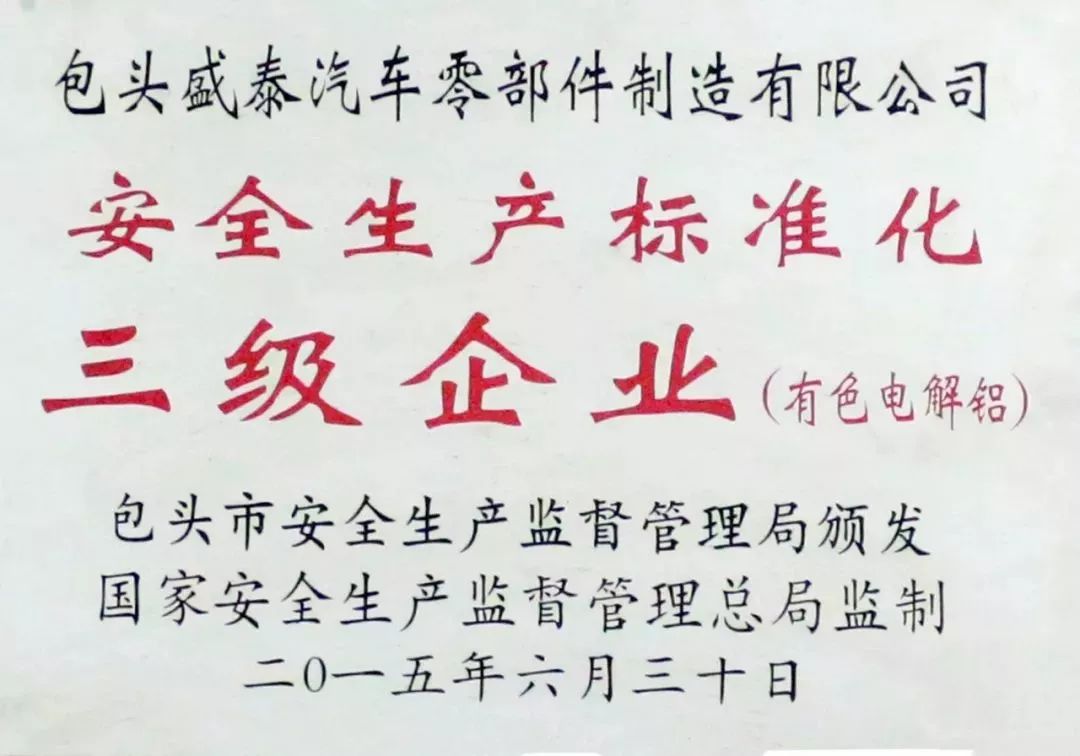 包头盛泰汽车零部件制造有限公司
安全生产标准化
三级企业(有色电解铝)
包头市安全生产监督管理局颁发
国家安全生产监督管理总局监制
二0一五年六月三十日